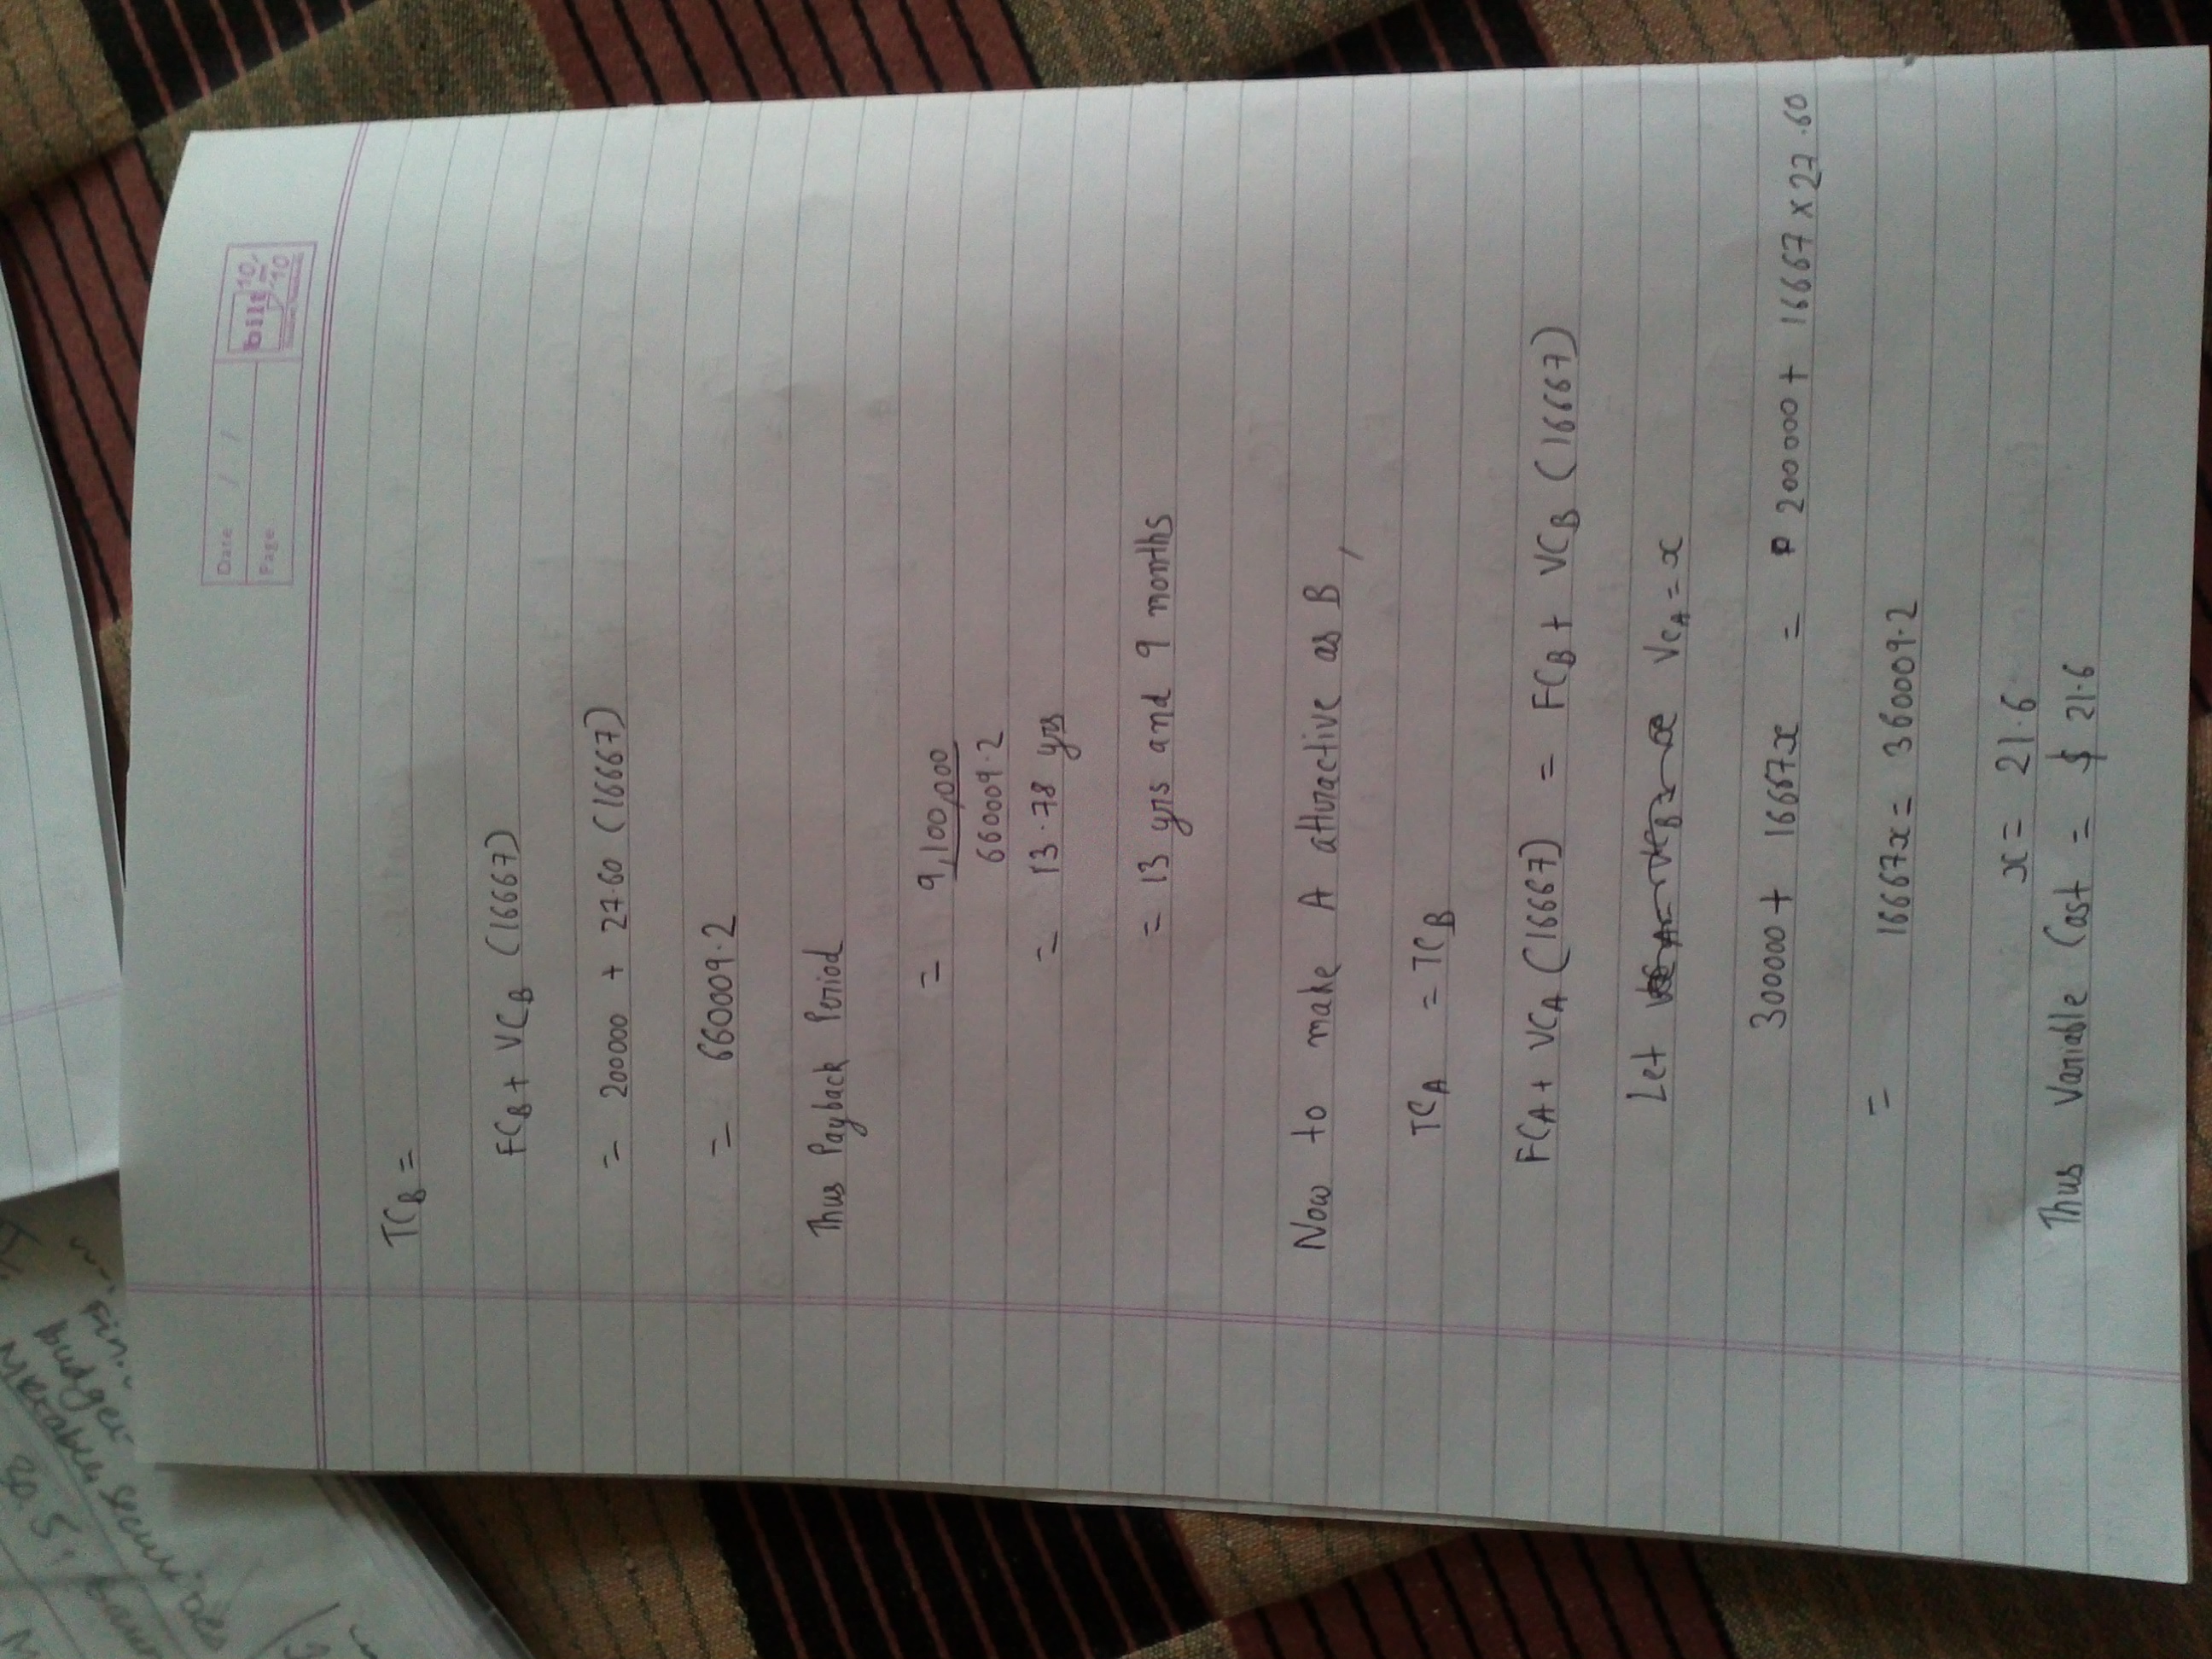 Date / /
Page
bilt
10/
10
TCB =
FCB + VCB (16667)
= 200000 + 27.60 (16667)
= 660009.2
Thus Payback Period
= 9,100,000
660009.2
= 13.78 yrs
= 13 yrs and 9 months
Now to make A attractive as B,
TCA = TCB
FCA + VCA (16667) = FCB + VCB (16667)
Let VCA = x
300000 + 16667x = 200000 + 16667 x 27.60
= 16667x = 360009.2
x = 21.6
Thus Variable Cost = $ 21.6
Fin.
budget
securities